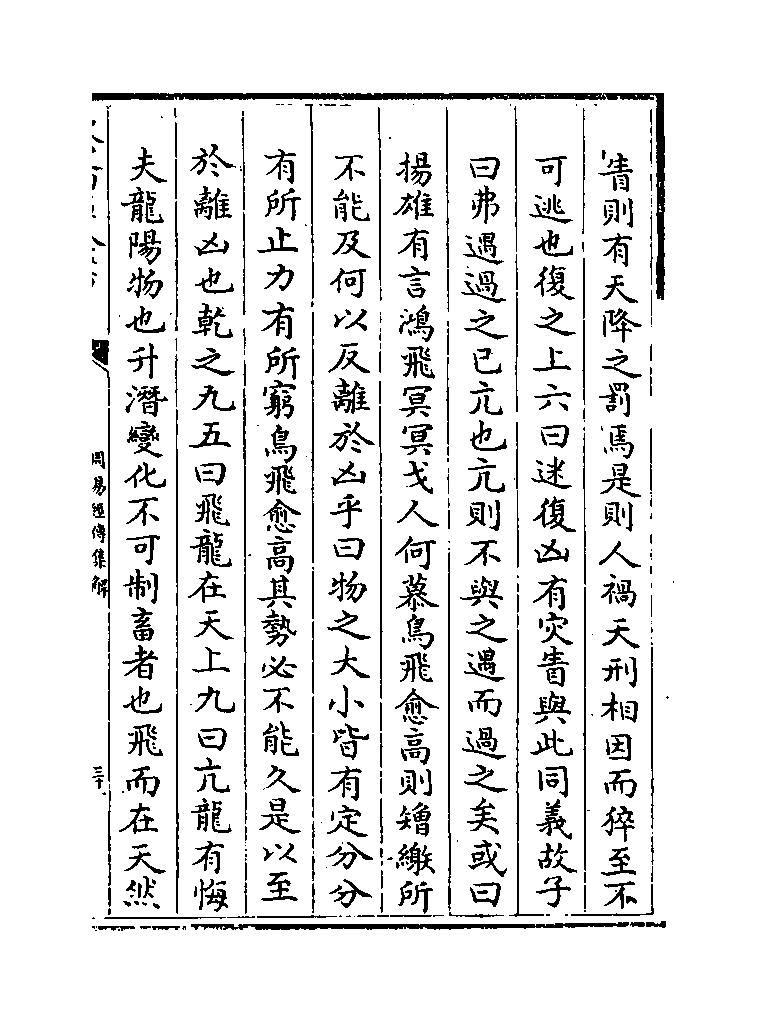 眚則有天降之罰焉是則人禍天刑相因而猝至不
可逃也復之上六曰迷復凶有灾眚與此同義故子
曰弗遇過之已亢也亢則不與之遇而過之矣或曰
揚雄有言鴻飛冥冥弋人何慕鳥飛愈高則矰繳所
不能及何以反離於凶乎曰物之大小皆有定分分
有所止力有所窮鳥飛愈高其勢必不能久是以至
於離凶也乾之九五曰飛龍在天上九曰亢龍有悔
夫龍陽物也升潛變化不可制畜者也飛而在天然
周易經傳集解
三十